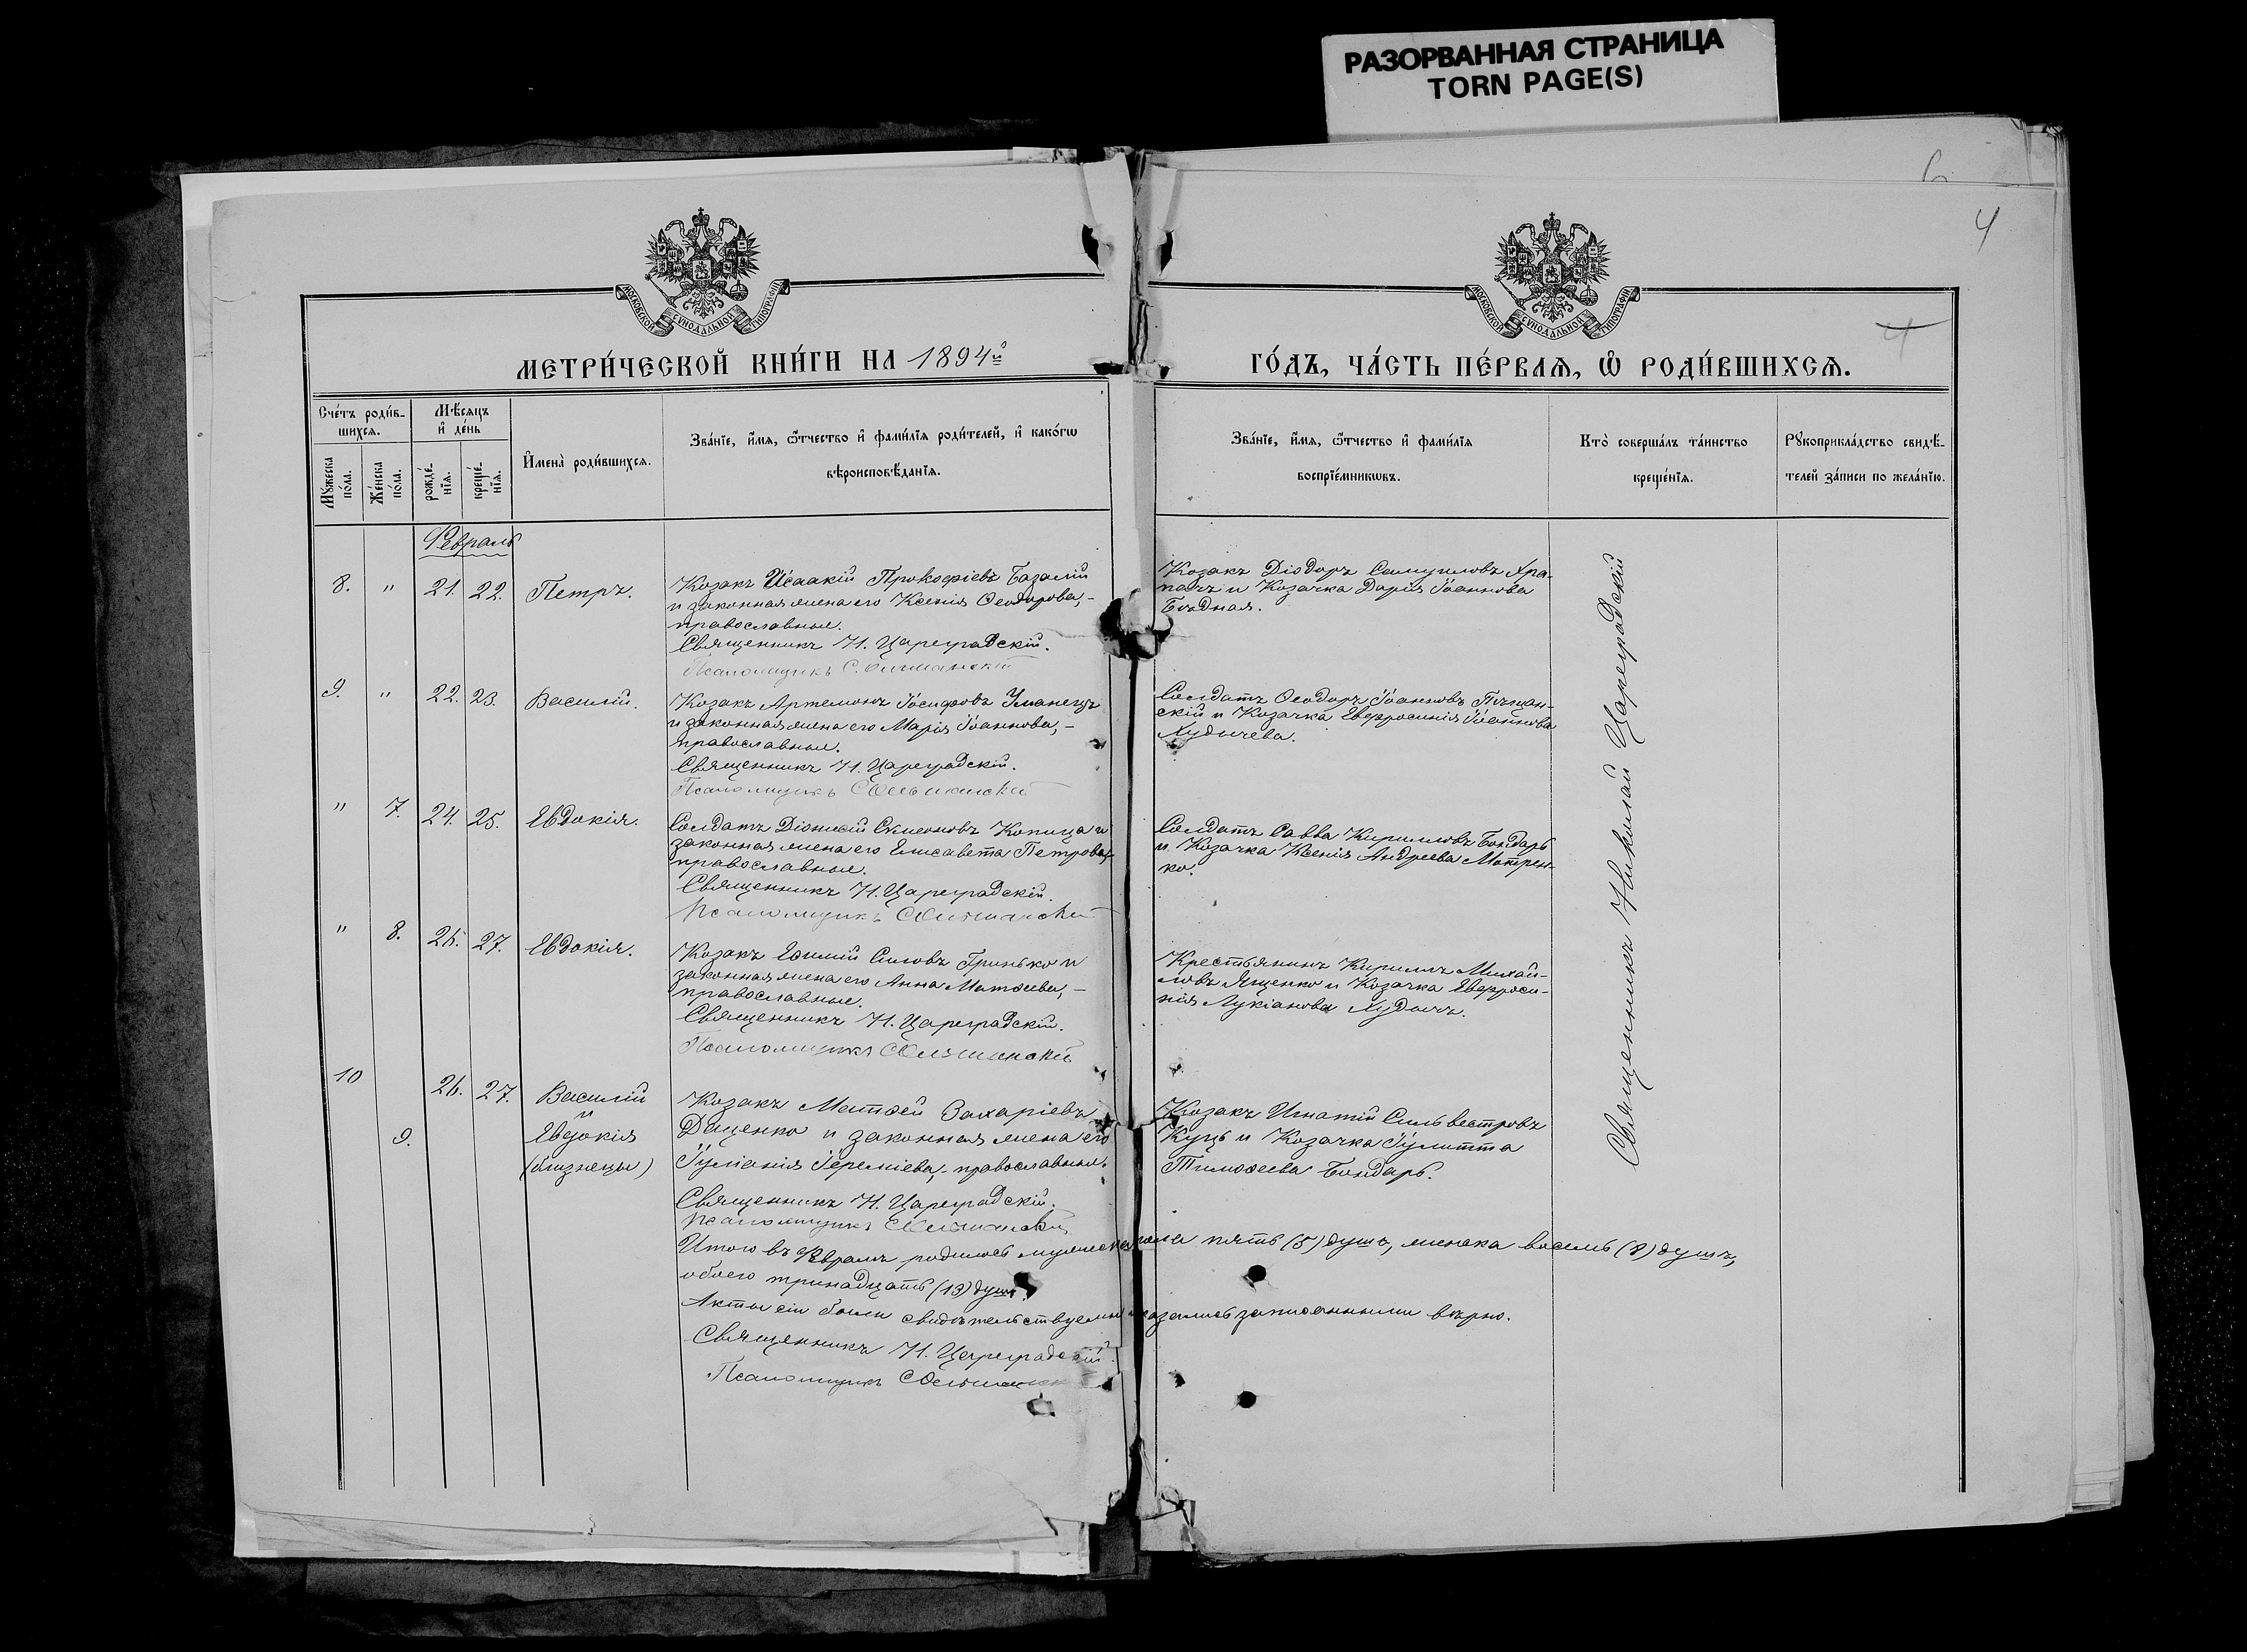 РАЗОРВАННАЯ СТРАНИЦА
TORN PAGE(S)
4
МОСКОВСКОЙ СѴНОДАЛЬНОЙ ТИПОГРАФІИ
МОСКОВСКОЙ СѴНОДАЛЬНОЙ ТИПОГРАФІИ
4
МЕТРИ́ЧЕСКОЙ КНИ́ГИ НА 1894й
ГО́ДЪ, ЧА́СТЬ ПЕ́РВАѦ, Ѽ РОДИ́ВШИХСѦ.
Сче́тъ роди́в-
шихсѧ.
Мѣ́сѧцъ
и҆ де́нь
Мꙋ́жеска
по́ла.
Же́нска
по́ла.
рожде́-
нїѧ.
креще́-
нїѧ.
И҆мена̀ роди́вшихсѧ.
Зва́нїе, и҆́мѧ, ѻ҆́тчество и҆ фами́лїѧ роди́телей, и҆ како́гѡ
вѣроисповѣ́данїѧ.
Зва́нїе, и҆́мѧ, ѻ҆́тчество и҆ фами́лїѧ
воспрїе́мникѡвъ.
Кто̀ соверша́лъ та́инство
креще́нїѧ.
Рꙋкоприкла́дство свидѣ́-
телей за́писи по жела́нїю.
Февраль
8. " 21. 22. Петръ.
Козакъ Исаакій Прокофіевъ Базалій
и законная жена его Ксенія Ѳеодорова,-
православные.
Священникъ Н. Цареградскій.
Псаломщикъ С. Ольшанскій
Козакъ Діодоръ Самуиловъ Хра-
пачъ и Козачка Дарія Іоаннова
Бѣдная.
9. " 22. 23. Василій.
Козакъ Артемонъ Іосифовъ Уманецъ
и законная жена его Марія Іоаннова,-
православные.
Священникъ Н. Цареградскій.
Псаломщикъ С Ольшанскій
Солдатъ Ѳеодоръ Іоанновъ Пѣщан-
скій и Козачка Евфросинія Іоаннова
Худичева.
" 7. 24. 25. Евдокія.
Солдатъ Діонисій Симеоновъ Копица и
законная жена его Елисавета Петрова,-
православные.
Священникъ Н. Цареградскій.
Псаломщикъ С Ольшанскій
Солдатъ Савва Кирилловъ Бондарь
и Козачка Ксенія Андреева Матрен-
ко.
" 8. 26. 27. Евдокія.
Козакъ Еѳимій Силовъ Гринько и
законная жена его Анна Матѳеева,-
православные.
Священникъ Н. Цареградскій.
Псаломщикъ С Ольшанскій
Крестьянинъ Кириллъ Михай-
ловъ Ященко и Козачка Евфроси-
нія Лукіанова Худичъ.
10 26. 27. Василій
и
9. Евдокія
(близнецы)
Козакъ Матѳей Захаріевъ
Даценко и законная жена его
Іуліанія Іереміева,- православные.
Священникъ Н. Цареградскій.
Псаломщикъ С Ольшанскій
Козакъ Игнатій Сильвестровъ
Куцъ и Козачка Іулитта
Тимоѳеева Бондарь.
Священникъ Николай Цареградскій
Итого въ Февралѣ родилось мужеска пола пять (5) душъ, женска восемь (8) душъ,
обоего тринадцать (13) душъ.
Акты сіи были свидѣтельствуемы и оказались записанными вѣрно.
Священникъ Н. Цареградскій.
Псаломщикъ С Ольшанскій